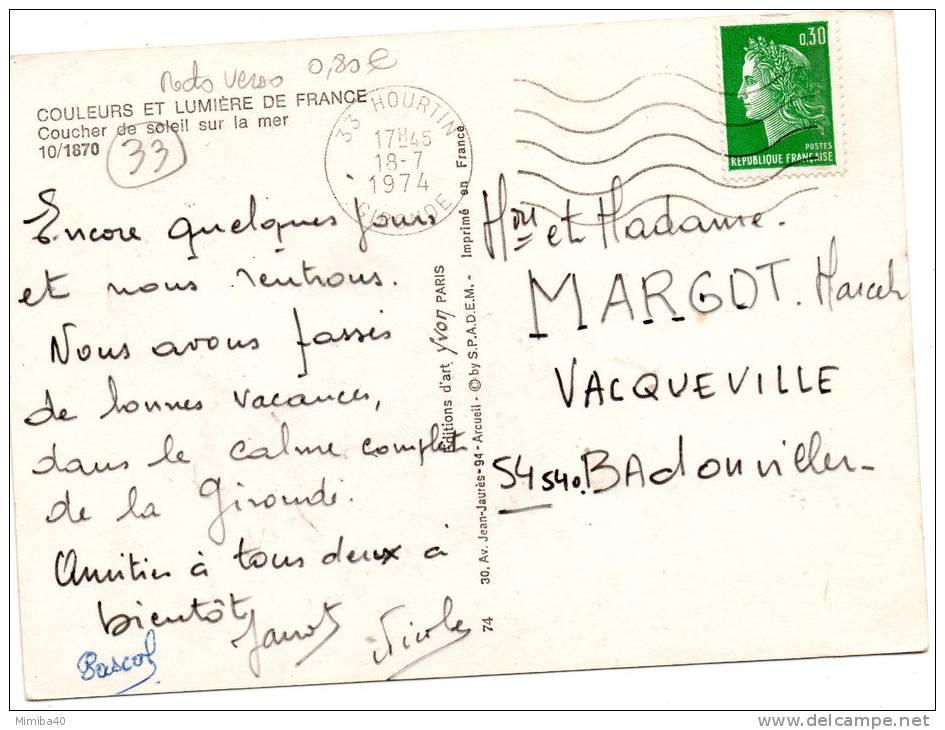 recto verso 0,80 €
COULEURS ET LUMIÈRE DE FRANCE
Coucher de soleil sur la mer
10/1870
33
33 HOURTIN
17H45
18-7
1974
GIRONDE
0,30
POSTES
REPUBLIQUE FRANÇAISE
Encore quelques jours
et nous rentrons.
Nous avons passés
de bonnes vacances,
dans le calme complet
de la Gironde.
Amitiés à tous deux à
bientôt
Pascal
Nicole
74
Editions d'art Yvon PARIS
30, Av. Jean-Jaurès - 94 - Arcueil - © by S.P.A.D.E.M. - Imprimé en France
et Madame.
MARGOT. Marcel
VACQUEVILLE
54540. BAdonviller
Mimiba40